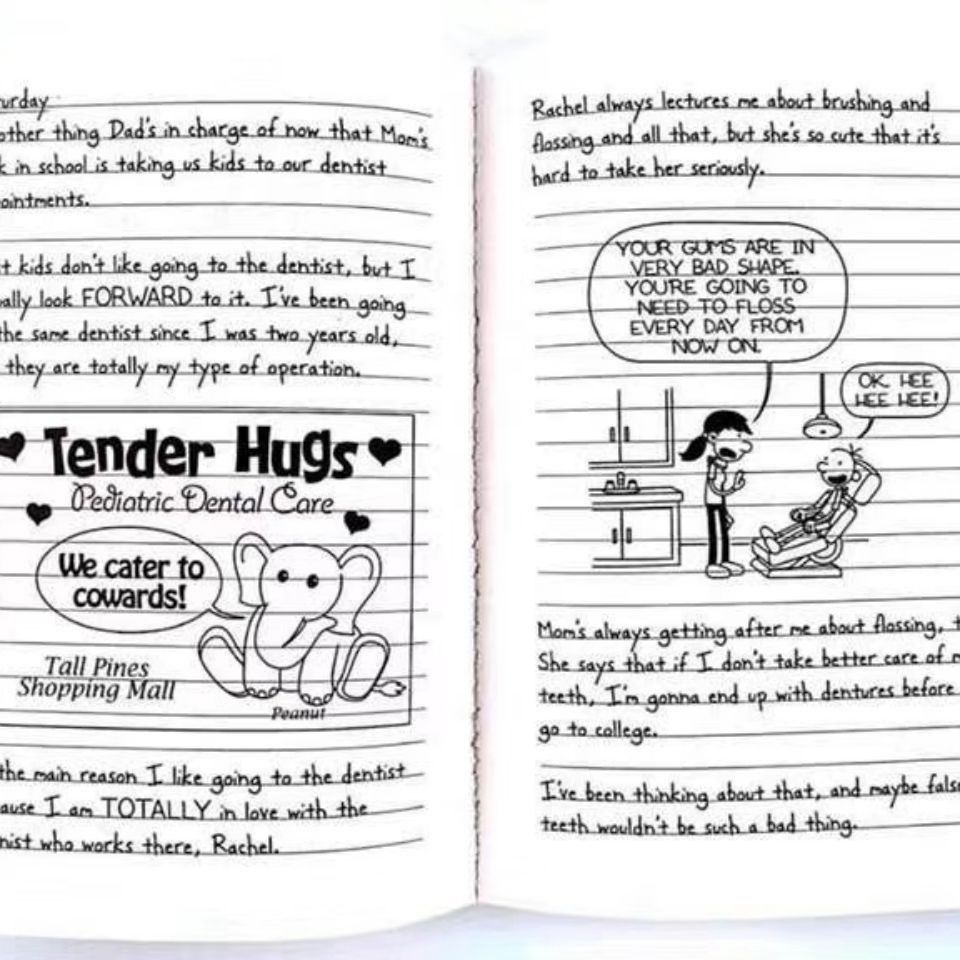 urday
other thing Dad's in charge of now that Mom's
k in school is taking us kids to our dentist
ointments.
t kids don't like going to the dentist, but I
ally look FORWARD to it. I've been going
the same dentist since I was two years old,
they are totally my type of operation.
Tender Hugs
Pediatric Dental Care
We cater to
cowards!
Tall Pines
Shopping Mall
Peanut
the main reason I like going to the dentist
ause I am TOTALLY in love with the
nist who works there, Rachel.
Rachel always lectures me about brushing and
flossing and all that, but she's so cute that it's
hard to take her seriously.
YOUR GUMS ARE IN
VERY BAD SHAPE.
YOU'RE GOING TO
NEED TO FLOSS
EVERY DAY FROM
NOW ON.
OK. HEE
HEE HEE!
Mom's always getting after me about flossing, t
She says that if I don't take better care of m
teeth, I'm gonna end up with dentures before
go to college.
I've been thinking about that, and maybe false
teeth wouldn't be such a bad thing.